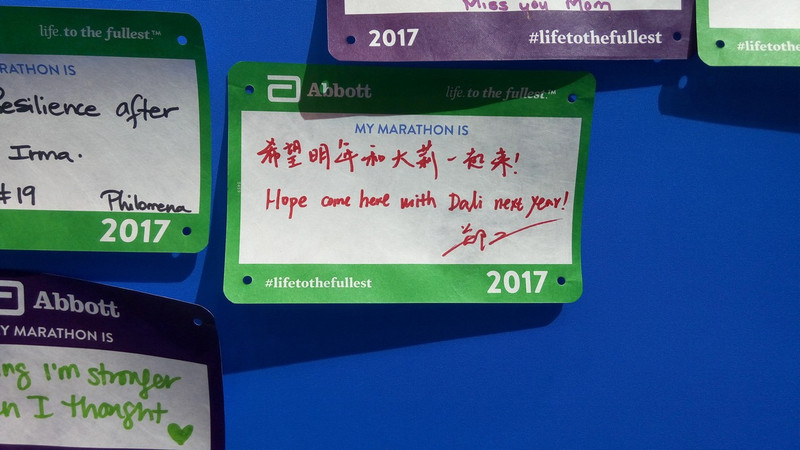 Miss you Mom
2017 #lifetothefullest
#lifetothefullest
life. to the fullest.™
MARATHON IS
Resilience after
Irma.
#19 Philomena
2017
Abbott life. to the fullest.™
MY MARATHON IS
希望明年和大莉一起来!
Hope come here with Dali next year!
#lifetothefullest 2017
Abbott
MY MARATHON IS
ing I'm stronger
n I thought